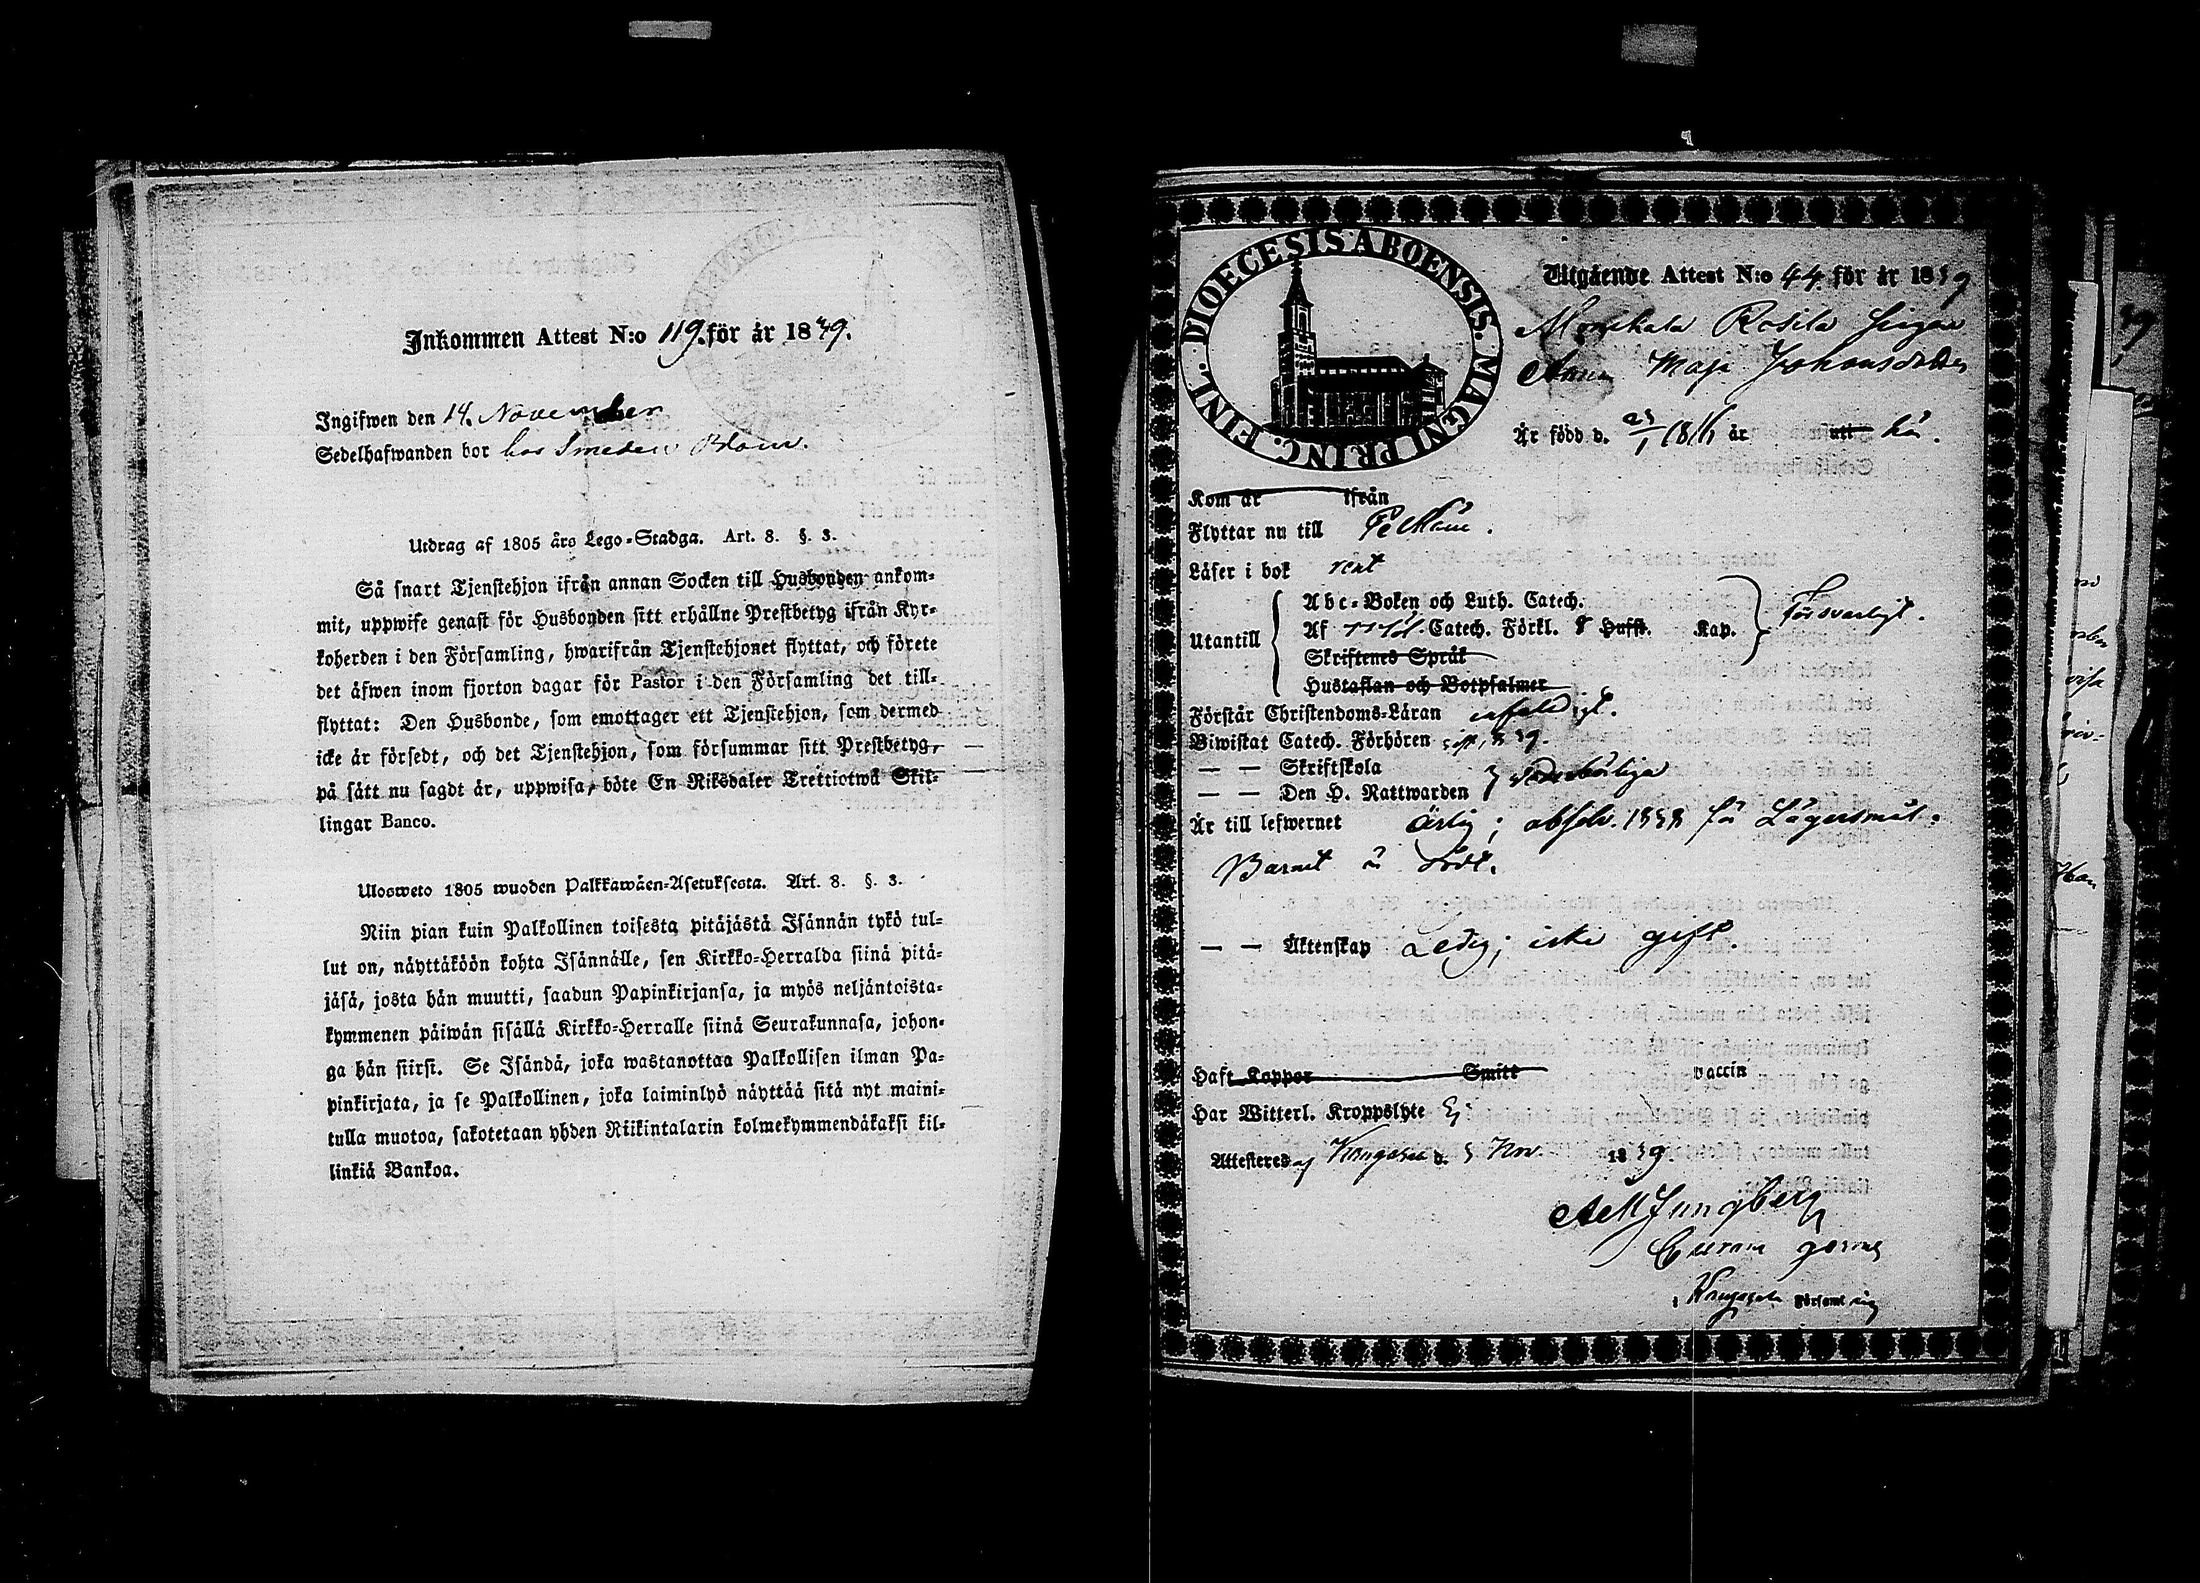 Inkommen Attest N:o 119. för år 1839.
Ingifwen den 14. November
Sedelhafwanden bor hos Smeden Blom.
Utdrag af 1805 års Lego-Stadga. Art. 8. §. 3.
Så snart Tjenstehjon ifrån annan Socken till Husbonden ankom-
mit, uppwise genast för Husbonden sitt erhållne Prestbetyg ifrån Kyr-
koherden i den Församling, hwarifrån Tjenstehjonet flyttat, och förete
det äfwen inom fjorton dagar för Pastor i den Församling det till-
flyttat: Den Husbonde, som emottager ett Tjenstehjon, som dermed
icke är försedt, och det Tjenstehjon, som försummar sitt Prestbetyg,
på sätt nu sagdt är, uppwisa, böte En Riksdaler Trettiotwå Skil-
lingar Banco.
Ulosweto 1805 wuoden Palkkawäen-Asetuksesta. Art. 8. §. 3.
Niin pian kuin Palkollinen toisesta pitäjästä Isännän tykö tul-
lut on, näyttäköön kohta Isännälle, sen Kirkko-Herralda siinä pitä-
jäsä, josta hän muutti, saadun Papinkirjansa, ja myös neljäntoista-
kymmenen päiwän sisällä Kirkko-Herralle siinä Seurakunnasa, johon-
ga hän siirsi. Se Isändä, joka wastanottaa Palkollisen ilman Pa-
pinkirjata, ja se Palkollinen, joka laiminlyö näyttää sitä nyt maini-
tulla muotoa, sakotetaan yhden Riikintalarin kolmekymmendäkaksi kil-
linkiä Bankoa.
DIOECESIS ABOENSIS. MAGNI PRINC. FINL.
Utgående Attest N:o 44 för år 1839
Rosila Pigan
Anna Maja Johansdotter
Är född d. 23/1 1816 år utt hä.
Kom år ifrån
Flyttar nu till Pelkäne.
Läser i bok rent
Abc-Boken och Luth. Catech.
Utantill Af Catech. Förkl. 8 Husst. Kap. Försvarligt.
Skriftenes Språk
Hustaflan och Botpsalmer
Förstår Christendoms-Läran enfaldigt.
Biwistat Catech. Förhören sist, 1839.
— — Skriftskola
— — Den H. Nattwarden vederbörligen
Är till lefwernet ärlig; absolv. 1838 för Lägersmål.
Barnet är dödt.
— — Äktenskap Ledig; icke gift.
Haft Koppor Smitt vaccin
Har Witterl. Kroppslyte Ej
Attesteras af Kangasala d. 5 Nov. 1839
Ljungberg
Curam gerens
i Kangasala Församling